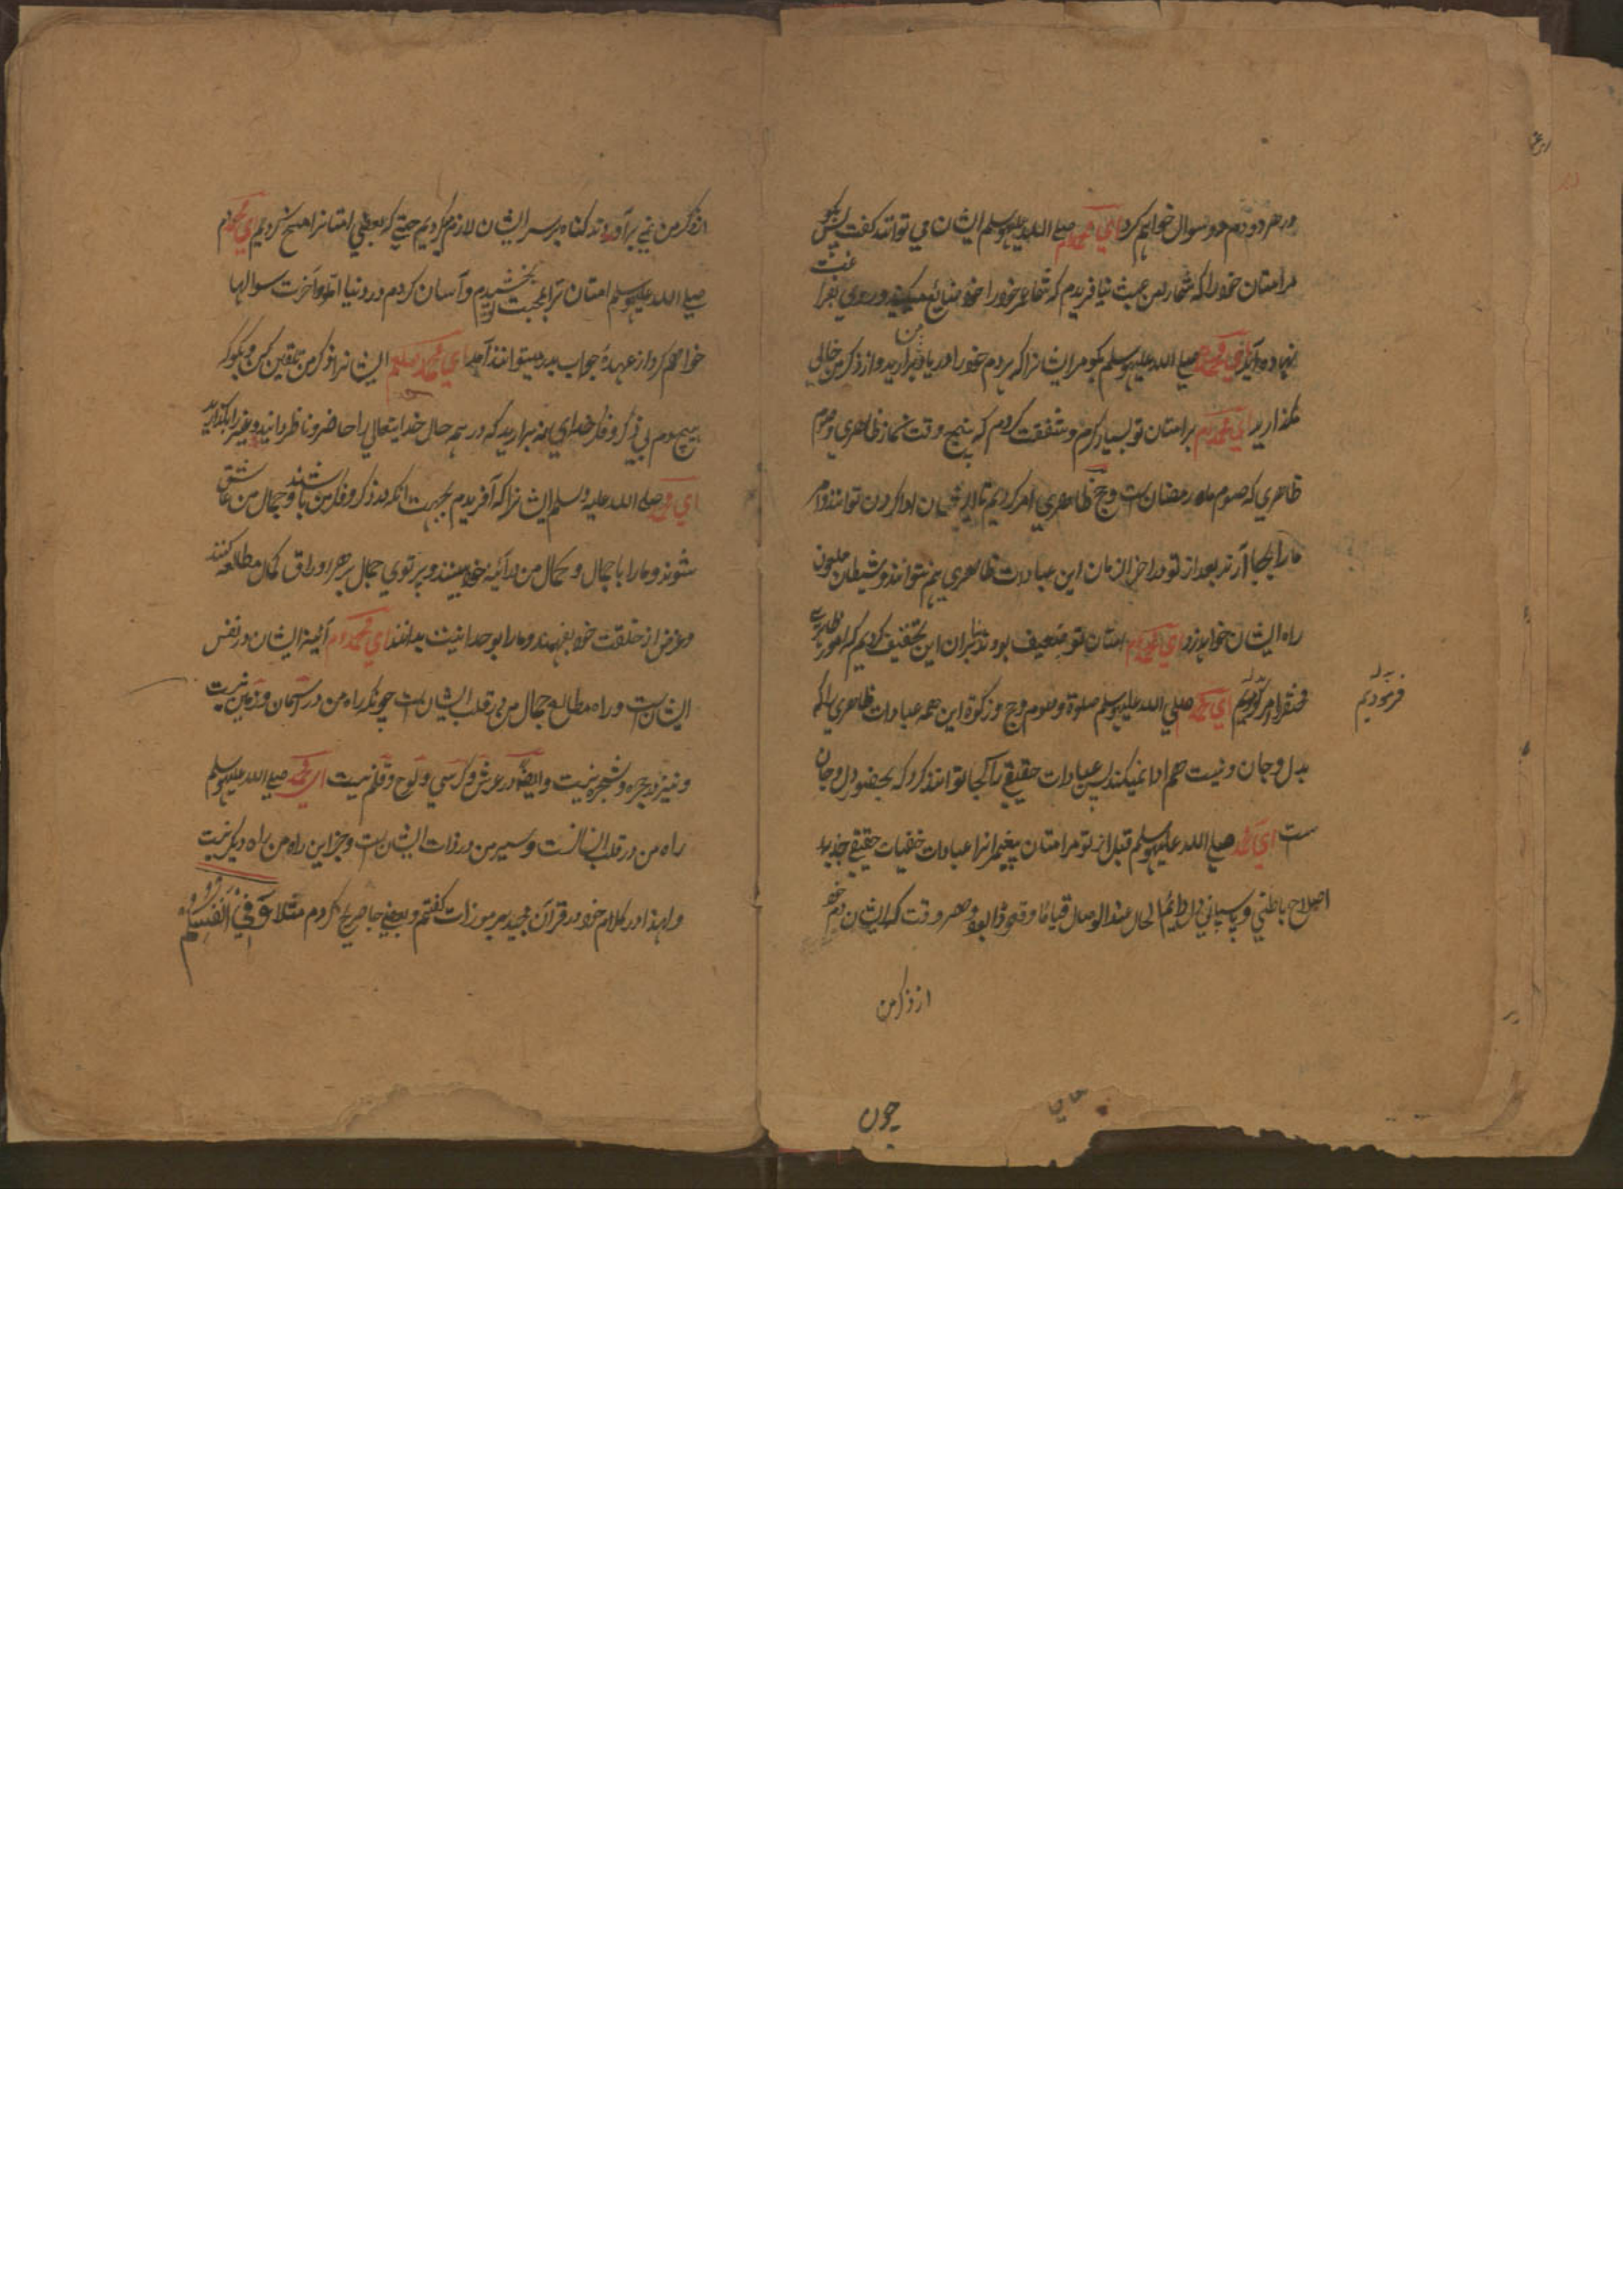 در هر دو دم دو سوال خواهم کرد ای محمد صلی الله علیه وسلم ایشان می توانند گفت پس بگو
مر امتان خود را که شمارا من عبث نیافریدم که شما عمر خود را خود ضایع میکنید و روی بغیر
نهاده اید ای محمد صلی الله علیه وسلم بگو مر ایشانرا که هر دم خود را در یاد من برآرید و از ذکر من خالی
نگذارید ای محمد بر امتان تو بسیار کرم و شفقت کردم که پنج وقت نماز ظاهری و صوم
ظاهری که صوم ماه رمضان است و حج ظاهری امر کردیم تا ایشان ادا کردن توانند و امر
ما را بجا آرند بعد از تو در آخر الزمان این عبادات ظاهری هم نتوانند و شیطان ملعون
راه ایشان خواهد زد ای محمد امتان تو ضعیف بودند بنابران این تخفیف کردیم که امور ظاهری
امر کردیم ای محمد صلی الله علیه وسلم صلوة و صوم و حج و زکوة این همه عبادات ظاهری را که
بدل و جان و نیت هم ادا نمیکنند پس عبادات حقیقی را کجا توانند کرد که بحضور دل و جان
ست ای محمد صلی الله علیه وسلم قبل از تو مر امتان پیغمبرانرا عبادات خفیات حقیقی
اصلاح باطنی و پاسبانی دل دایم الحال عند الوصال قیامًا و قعودًا بود و هر وقت که ایشان دم خود
از ذکر من
چون
فرمودیم
از ذکر من نمی برآوردند گناه بر سر ایشان لازم کردیم حتی که بعضی امتانرا مسخ کردیم ای محمد
صلی الله علیه وسلم امتان ترا بمحبت تو بخشیدم و آسان کردم در دنیا اما در آخرت سوالها
خواهم کرد از عهدهٔ جواب بدر میتوانند آمد ای محمد صلعم ایشانرا ذکر من تلقین کن و بگو که
هیچ دم بی ذکر و فکر خدای نه برآرید که در همه حال خدایتعالی را حاضر و ناظر دانید و غیر را بگذارید
ای محمد صلی الله علیه وسلم ایشانرا که آفریدم بجهت آنکه در ذکر و فکر من باشند و جمال من عاشق
شوند و ما را با جمال و کمال من در آئینه خود بینند و پرتوی جمال بر هر اوراق کمال مطالعه کنند
و غرض از خلقت خود بفهمند و ما را بوحدانیت بدانند ای محمد آئینهٔ ایشان در نفس
ایشان است و راه مطالع جمال من در قلب ایشان است چونکه راه من در آسمان و زمین نیست
و نیز در حجره و شجره نیست و ایضًا در عرش و کرسی و لوح و قلم نیست ای محمد صلی الله علیه وسلم
راه من در قلب انسانست و سیر من در ذات ایشان است و جز این راه من راه دیگر نیست
و لهذا در کلام خود در قرآن مجید بر موزات گفتم و بعضی جا صریح کردم مثلا وَفِي أَنْفُسِكُمْ